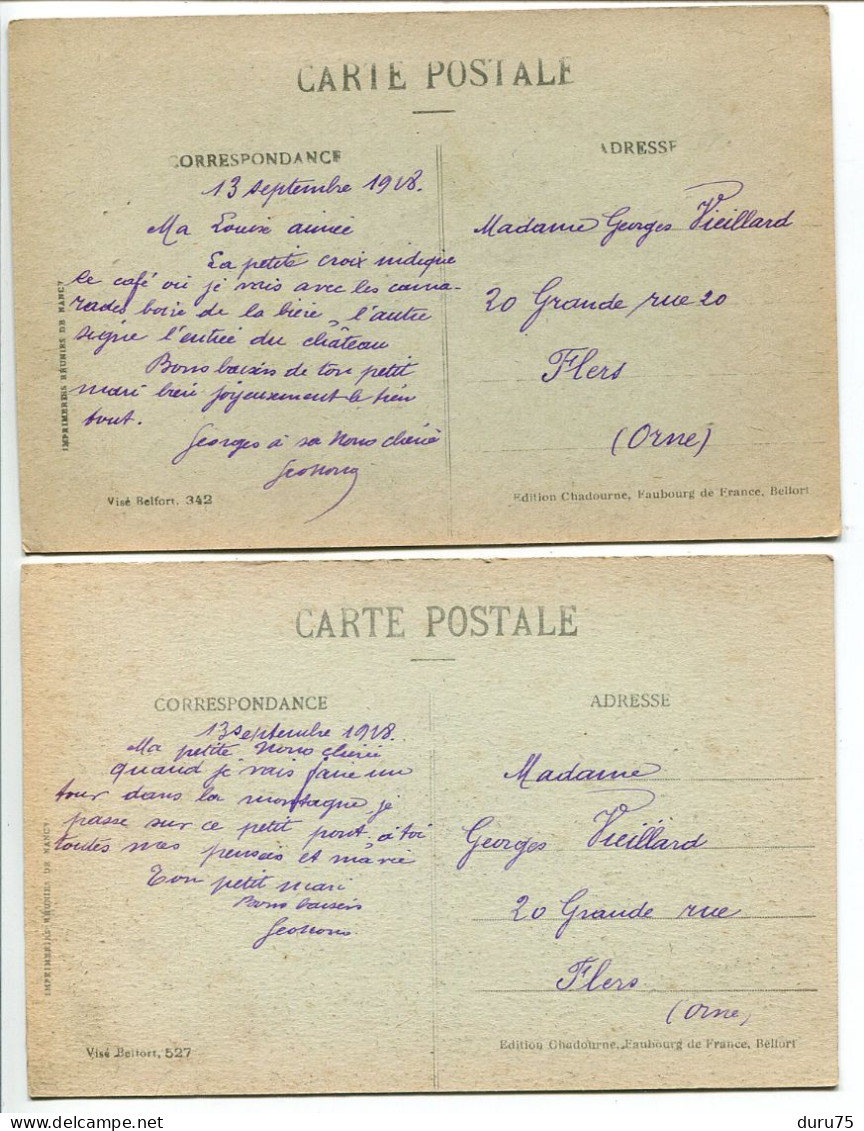 CARTE POSTALE
CORRESPONDANCE
13 septembre 1918.
Ma Louise aimée
La petite croix indique
le café où je vais avec les cama-
rades boire de la bière, l'autre
signe l'entrée du château
Bons baisers de ton petit
mari bien joyeusement le tien
tout.
Georges à sa Nono chérie
Geonono
IMPRIMERIES RÉUNIES DE NANCY
Visé Belfort, 342
ADRESSE
Madame Georges Vieillard
20 Grande rue 20
Flers
(Orne)
Edition Chadourne, Faubourg de France, Belfort
CARTE POSTALE
CORRESPONDANCE
13 septembre 1918.
Ma petite Nono chérie
quand je vais faire un
tour dans la montagne je
passe sur ce petit pont. à toi
toutes mes pensées et ma vie
Ton petit mari
Bons baisers
Geonono
IMPRIMERIES RÉUNIES DE NANCY
Visé Belfort, 527
ADRESSE
Madame
Georges Vieillard
20 Grande rue
Flers
(Orne)
Edition Chadourne, Faubourg de France, Belfort
duru75